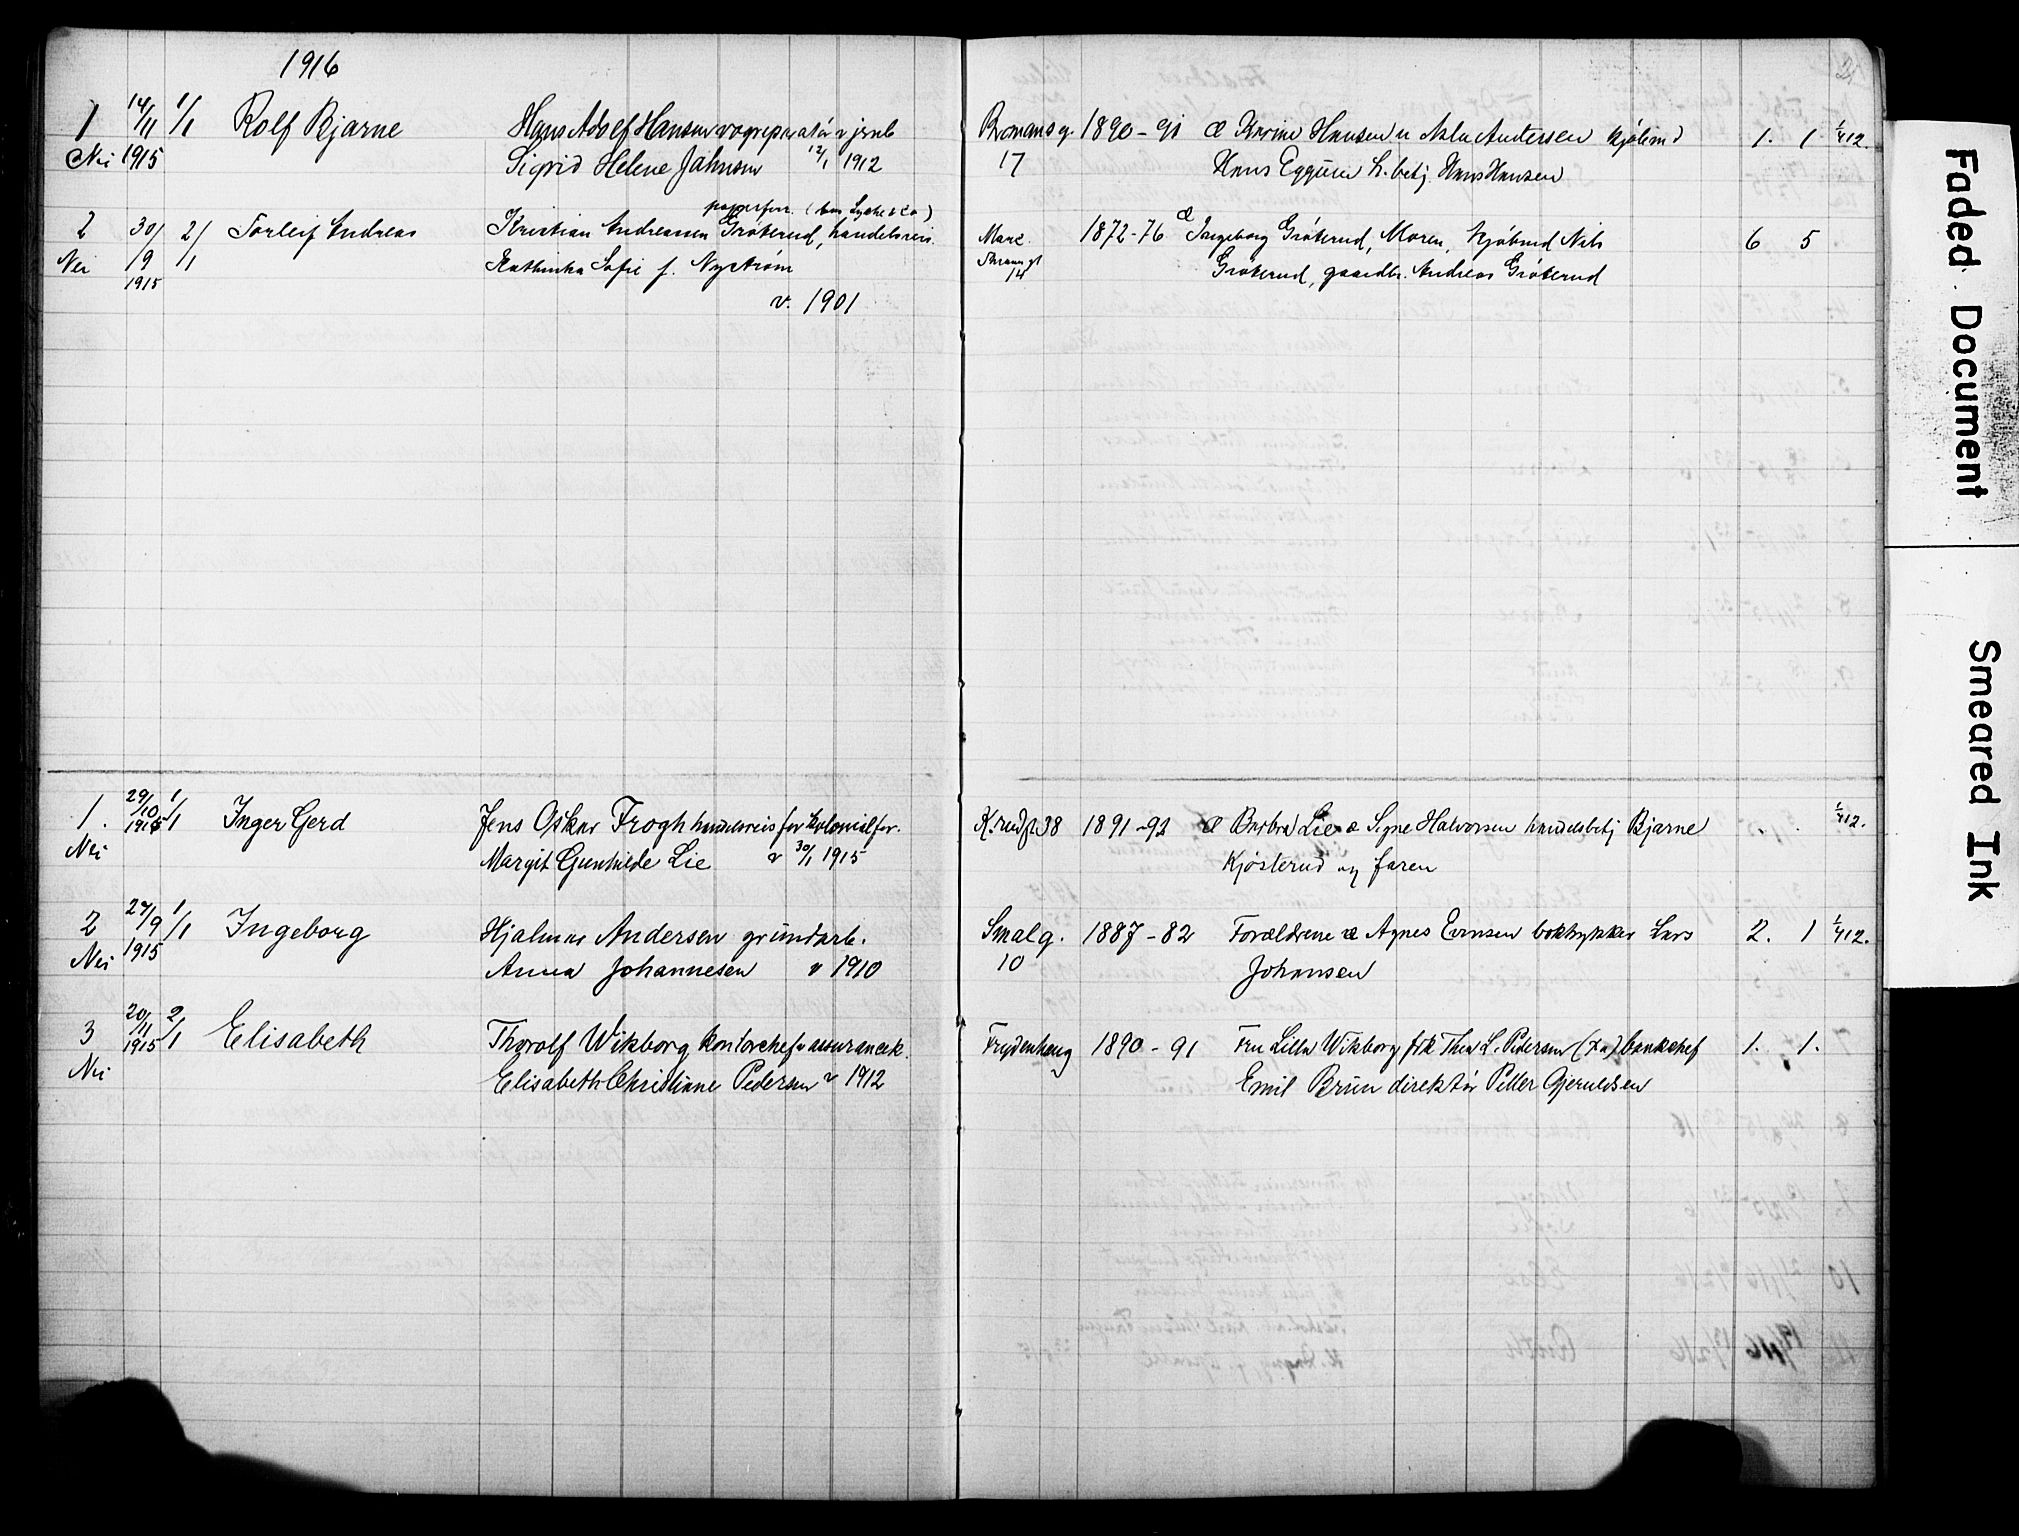 1916
1 14/11 1/1 Rolf Bjarne Hans Adolf Hansen vognreparatør v jernb Bromansg. 1890-91 æ Karine Hansen u Asla Andersen kjøbmd 1. 1 1/4 12.
Nei 1915 Sigrid Helene Jahnsen 12/1 1912 17 Hans Eggum h.betj. Hans Hansen
papirforr. (hos Lyche & Co)
2 30/ 2/ Torleif Andreas Kristian Andreassen Grøterud, handelsreis. Marc. 1872-76 æ Ingeborg Grøterud, Moren, kjøbmd Nils 6 5
Nei 9 1 Kathinka Sofie f. Nystrøm Thranesgt Grøterud, gaardbr. Andreas Grøterud
1915 14
v. 1901
1. 29/10 1/1 Inger Gerd Jens Oskar Frogh handelsreis for kolonialfor. K.rudgt 38 1891-92 æ Barbra Lie æ Signe Halvorsen handelsbetj Bjarne 1/4 12.
Nei 1915 Margit Gunhilde Lie v 30/1 1915 Kjøsterud og faren
2 27/9 1/1 Ingeborg Hjalmar Andersen grundarb. Smalg. 1887-82 Forældrene æ Agnes Evensen boktrykker Lars 2. 1 1/4 12.
Nei 1915 Anna Johannesen v 1910 10 Johansen
3 20/11 2/1 Elisabeth Thorolf Wikborg kontorchef v assurancek. Frydenhaug 1890-91 Fru Lilla Wikborg frk Thea L. Pedersen bankchef 1. 1.
Nei 1915 Elisabeth Christiane Pedersen v 1912 Emil Brun direktør Peter Gjeruldsen
21
Faded Document
Smeared Ink